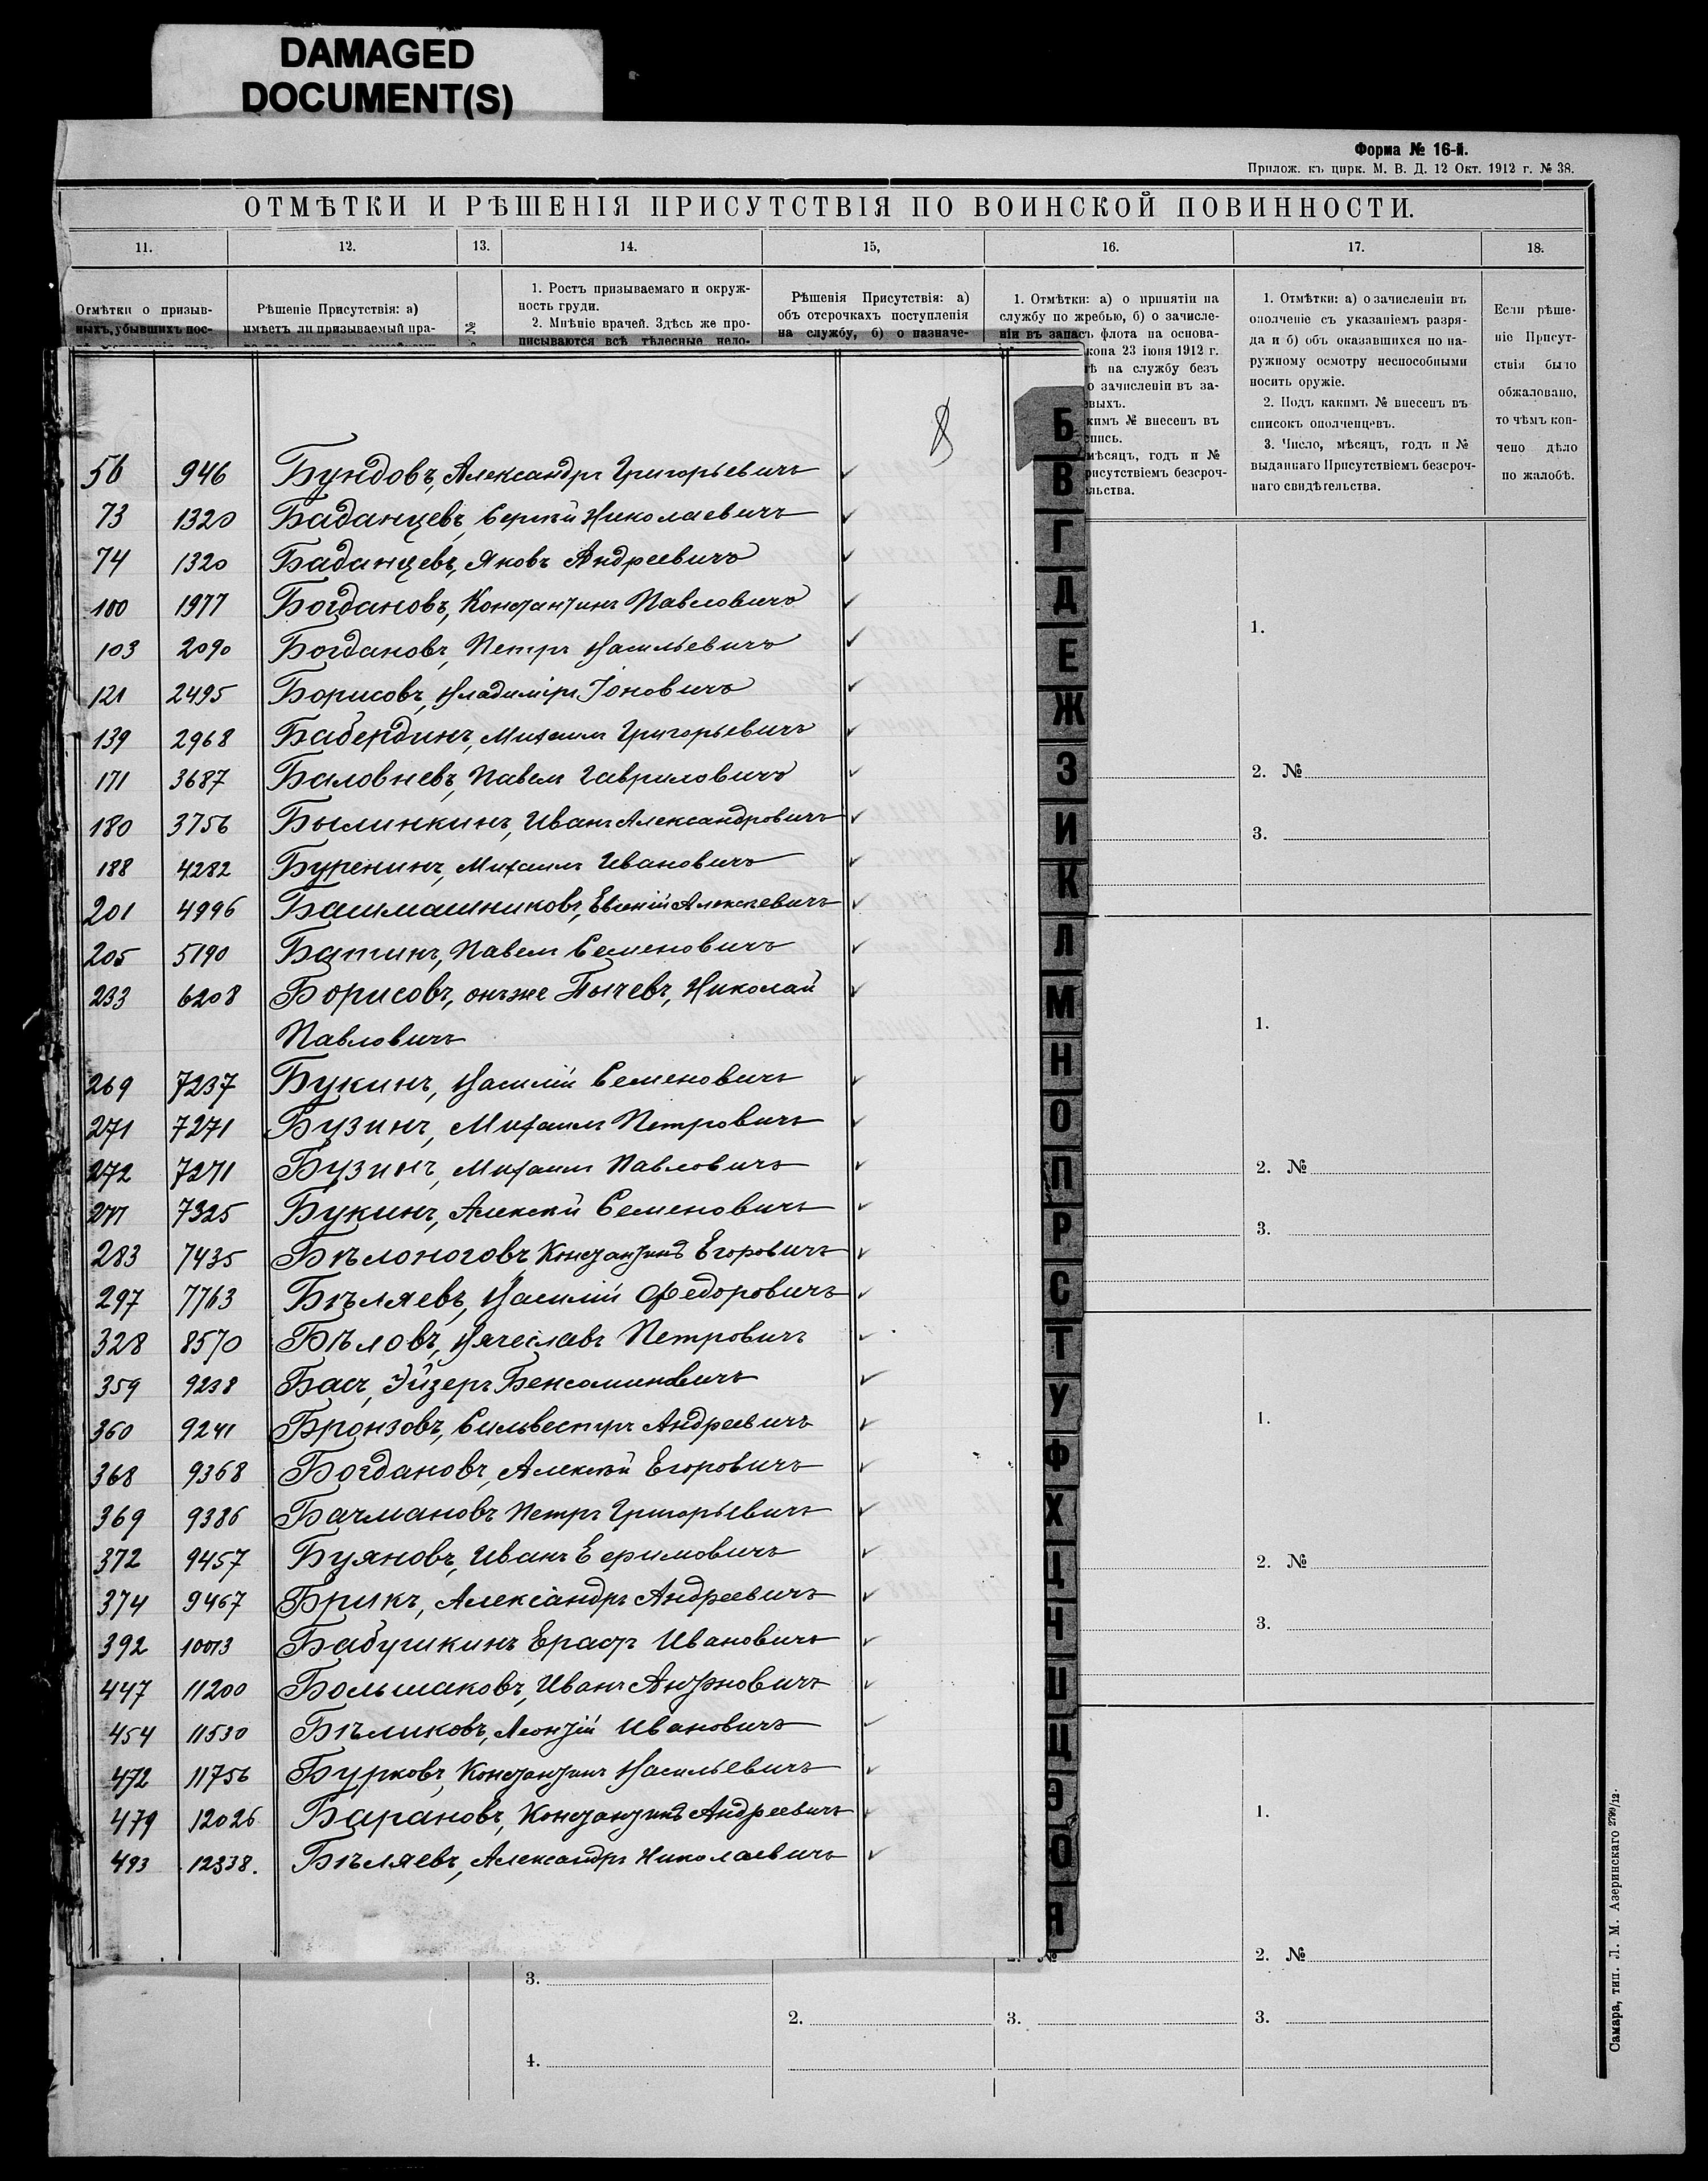 DAMAGED
DOCUMENT(S)
Форма № 16-й.
Прилож. къ цирк. М. В. Д. 12 Окт. 1912 г. № 38.
ОТМѢТКИ И РѢШЕНІЯ ПРИСУТСТВІЯ ПО ВОИНСКОЙ ПОВИННОСТИ.
11. 12. 13. 14. 15, 16. 17. 18.
Отмѣтки о призыв-
ныхъ, убывшихъ пос-
Рѣшеніе Присутствія: а)
имѣетъ ли призываемый пра-
№
1. Ростъ призываемаго и окруж-
ность груди.
2. Мнѣніе врачей. Здѣсь же про-
писываются всѣ тѣлесные недо-
Рѣшенія Присутствія: а)
объ отсрочкахъ поступленія
на службу, б) о назначе-
1. Отмѣтки: а) о принятіи на
службу по жребью, б) о зачисле-
ніи въ запасъ флота на основа-
кона 23 іюня 1912 г.
ѣ на службу безъ
о зачисленіи въ за-
евыхъ.
кимъ № внесенъ въ
спись.
мѣсяцъ, годъ и №
рисутствіемъ безсроч-
льства.
1. Отмѣтки: а) о зачисленіи въ
ополченіе съ указаніемъ разря-
да и б) объ оказавшихся по на-
ружному осмотру неспособными
носить оружіе.
2. Подъ какимъ № внесенъ въ
списокъ ополченцевъ.
3. Число, мѣсяцъ, годъ и №
выданнаго Присутствіемъ безсроч-
наго свидѣтельства.
Если рѣше-
ніе Присут-
ствія было
обжаловано,
то чѣмъ кон-
чено дѣло
по жалобѣ.
56 946 Бундовъ, Александръ Григорьевичъ
73 1320 Баданцевъ, Сергѣй Николаевичъ
74 1320 Баданцевъ, Яковъ Андреевичъ
100 1977 Богдановъ, Константинъ Павловичъ
103 2090 Богдановъ, Петръ Васильевичъ
121 2495 Борисовъ, Владиміръ Іоновичъ
139 2968 Бабердинъ, Михаилъ Григорьевичъ
171 3687 Баловневъ, Павелъ Гавриловичъ
180 3756 Былинкинъ, Иванъ Александровичъ
188 4282 Буренинъ, Михаилъ Ивановичъ
201 4996 Башмашниковъ, Евгеній Алексѣевичъ
205 5190 Батинъ, Павелъ Семеновичъ
233 6208 Борисовъ, онъ же Пычевъ, Николай
Павловичъ
269 7237 Букинъ, Василій Семеновичъ
271 7271 Бузинъ, Михаилъ Петровичъ
272 7271 Бузинъ, Михаилъ Павловичъ
277 7325 Букинъ, Алексѣй Семеновичъ
283 7435 Бѣлоноговъ, Константинъ Егоровичъ
297 7763 Бѣляевъ, Василій Федоровичъ
328 8570 Бѣловъ, Вячеславъ Петровичъ
359 9238 Басъ, Эйзеръ Бенсоминовичъ
360 9241 Бронзовъ, Сильвестръ Андреевичъ
368 9368 Богдановъ, Алексѣй Егоровичъ
369 9386 Бачмановъ Петръ Григорьевичъ
372 9457 Буяновъ, Иванъ Ефимовичъ
374 9467 Брикъ, Александръ Андреевичъ
392 10013 Бабушкинъ Ерастъ Ивановичъ
447 11200 Большаковъ, Иванъ Антоновичъ
454 11530 Бѣликовъ, Леонтій Ивановичъ
472 11756 Бурковъ, Константинъ Васильевичъ
479 12026 Барановъ, Константинъ Андреевичъ
493 12338. Бѣляевъ, Александръ Николаевичъ
Б
В
Г
Д
Е
Ж
З
И
К
Л
М
Н
О
П
Р
С
Т
У
Ф
Х
Ц
Ч
Ш
Щ
Э
Ю
Я
1.
2. №
3.
1.
2. №
3.
1.
2. №
3.
1.
2. №
3. 2. 3. 3.
4.
Самара, тип. Л. М. Азеринскаго 2799/12.